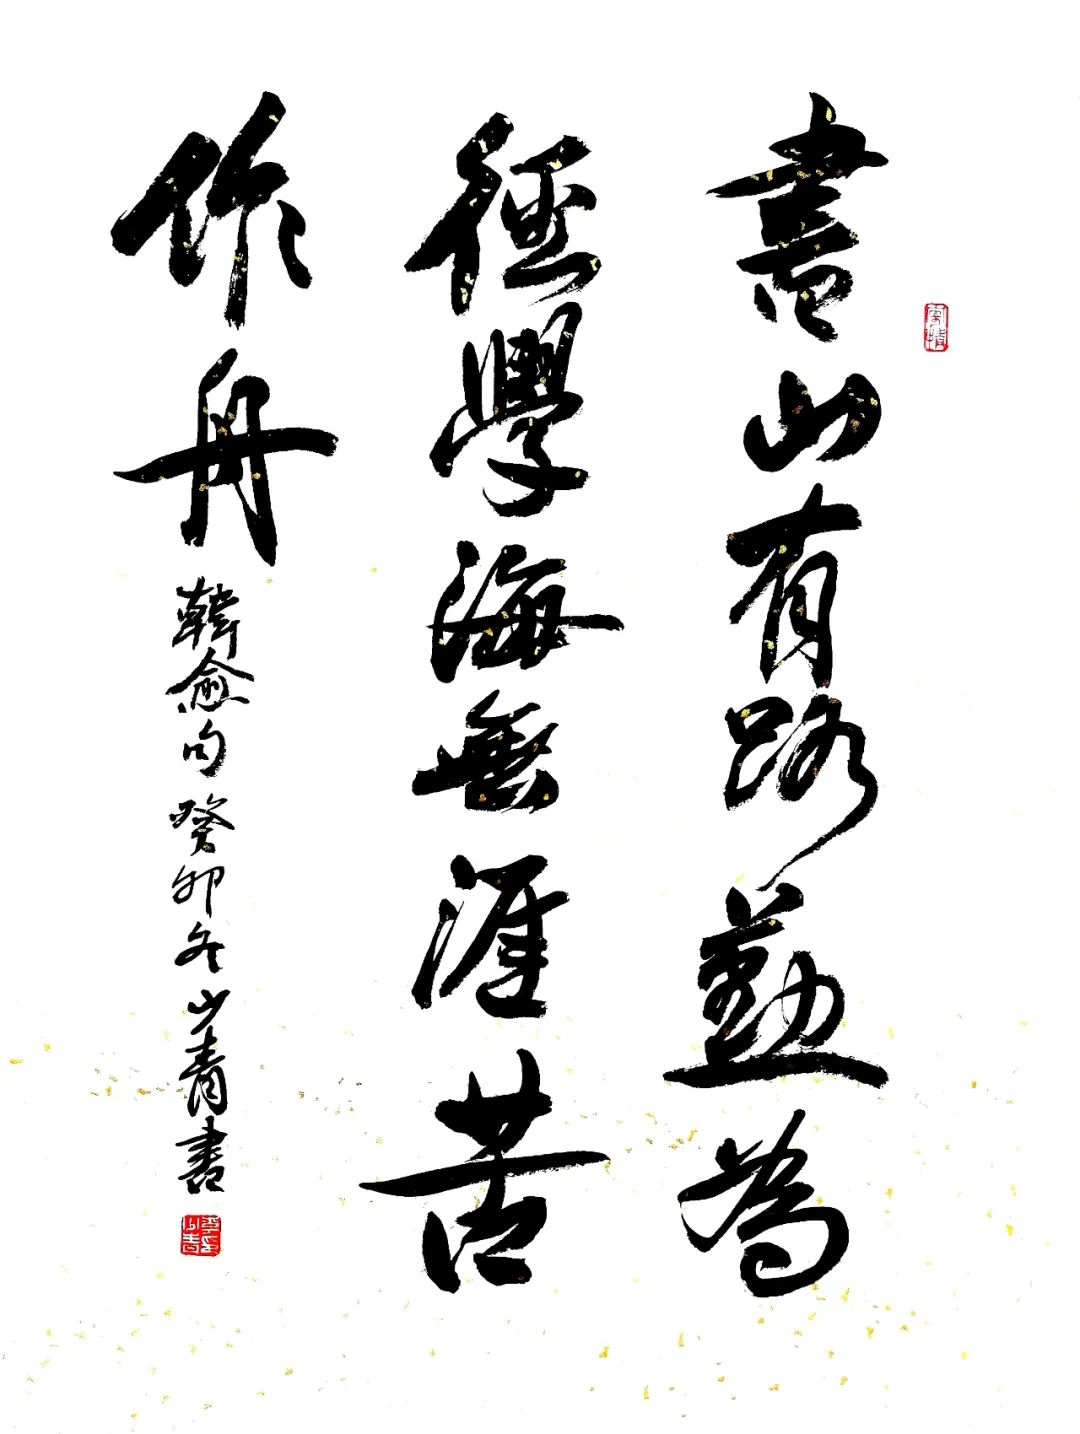 書山有路勤為
徑學海無涯苦
作舟
韓愈句 癸卯冬 少青書